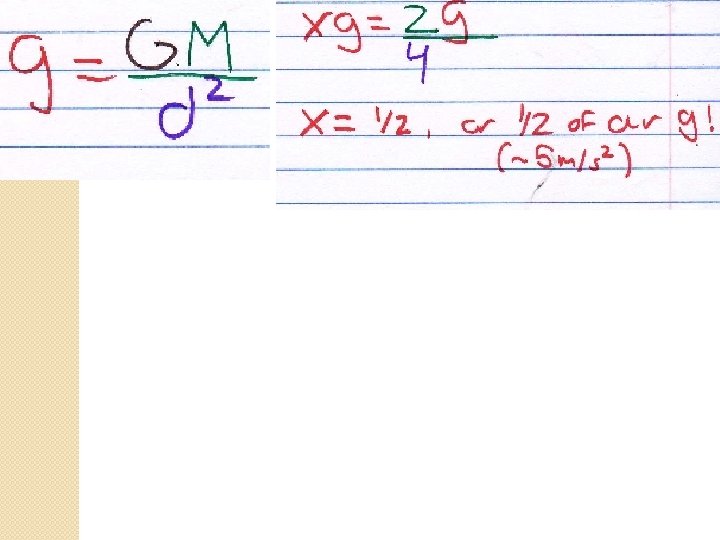 g = G.M / d²
xg = 2g / 4
x = 1/2, or 1/2 of our g!
(~5 m/s²)